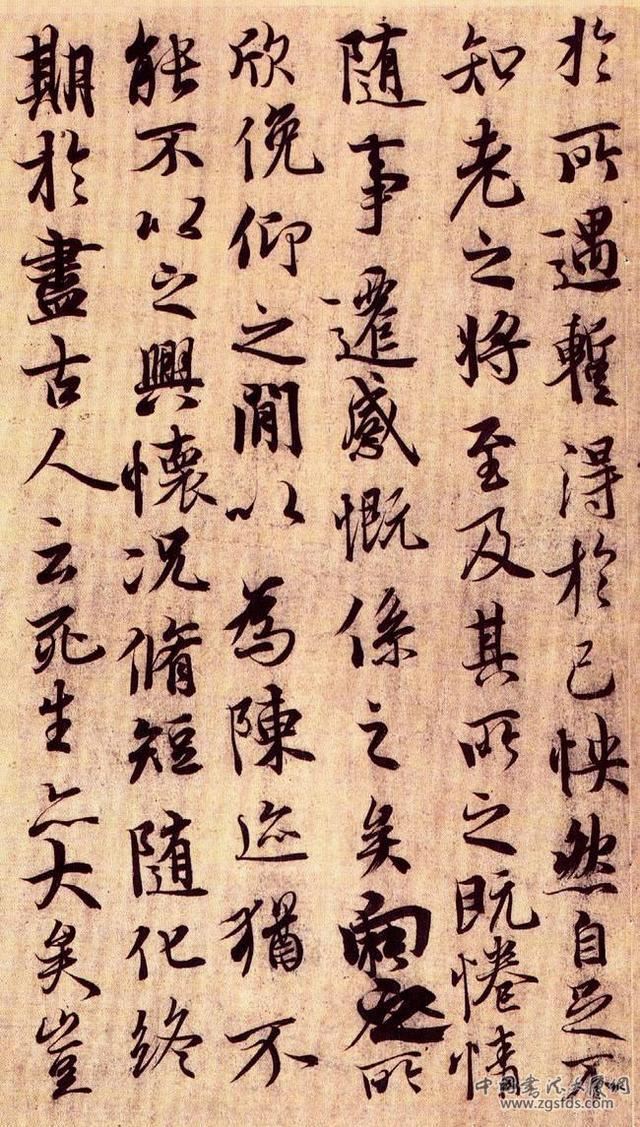 於所遇暫得於己怏然自足不
知老之將至及其所之既惓情
随事遷感慨係之矣向之所
欣俛仰之閒以為陳迹猶不
能不以之興懷况脩短随化終
期於盡古人云死生亦大矣豈
中国书法大图网
www.zgsfds.com